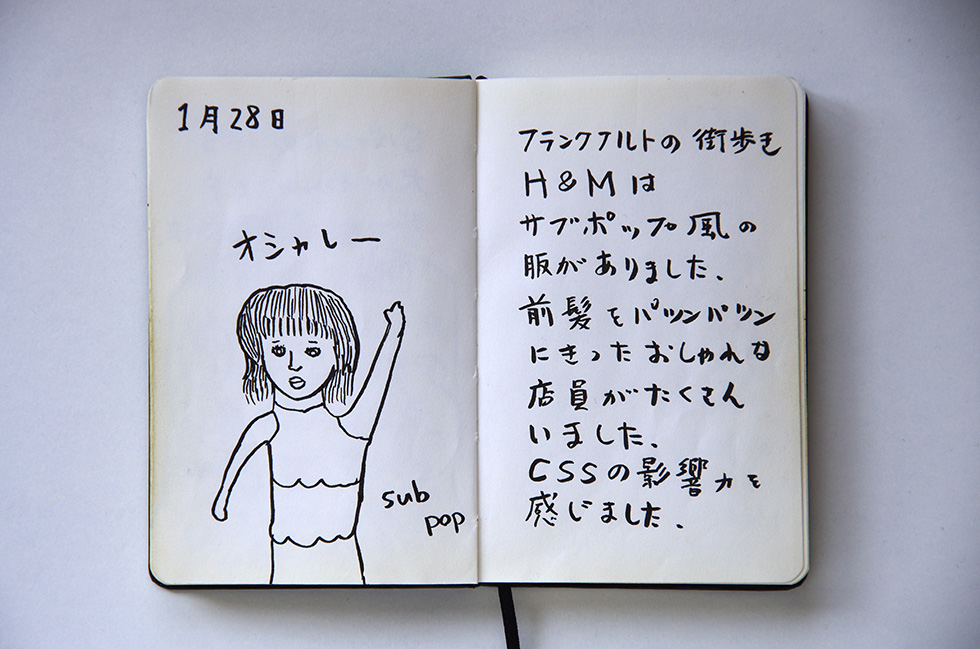 1月28日
オシャレー
sub
pop
フランクフルトの街歩き
H&Mは
サブポップ風の
服がありました、
前髪をパツンパツン
にきったおしゃれな
店員がたくさん
いました、
CSSの影響力を
感じました、